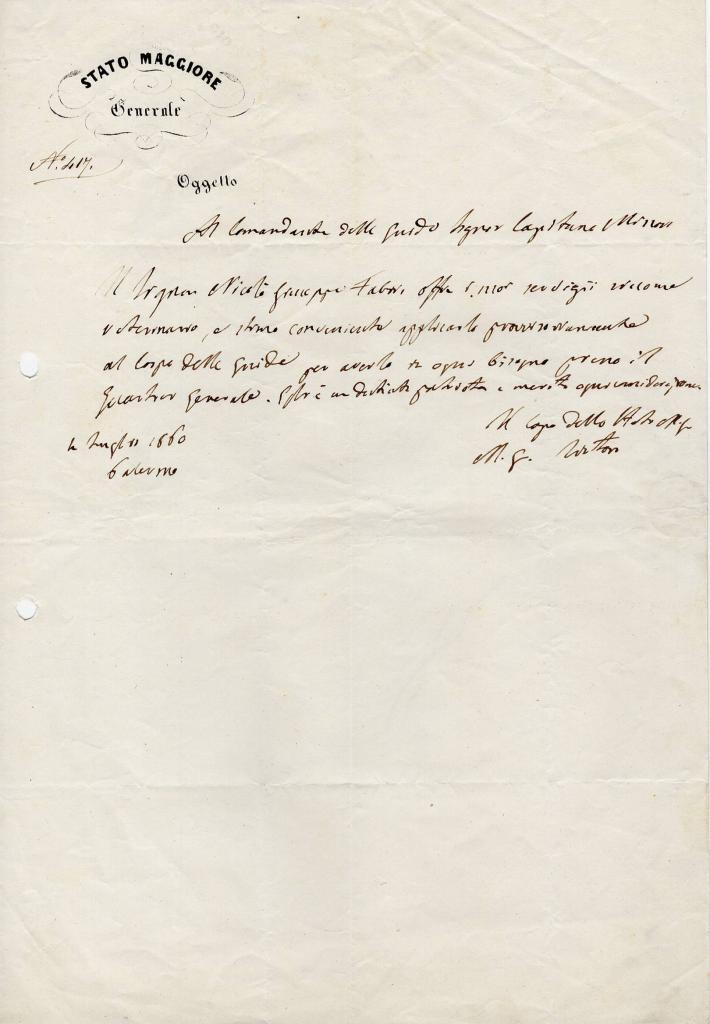 STATO MAGGIORE
Generale
N.° 417.
Oggetto
Al Comandante delle Guide Signor Capitano Missori
Il Signor Nicolò Giuseppe Fabrizi offre i suoi servigii siccome
veterinario, e stimo conveniente applicarlo provvisoriamente
al Corpo delle Guide per averlo in ogni bisogno presso il
Quartier Generale. Egli è un distinto patriotta e merita ogni considerazione
Il Capo dello Stato M. G.
4 Luglio 1860
Palermo